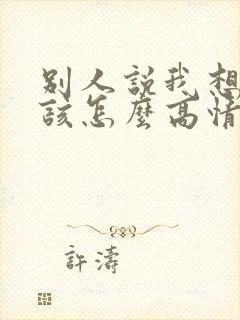 別人說我想
該怎麼高情
許濤